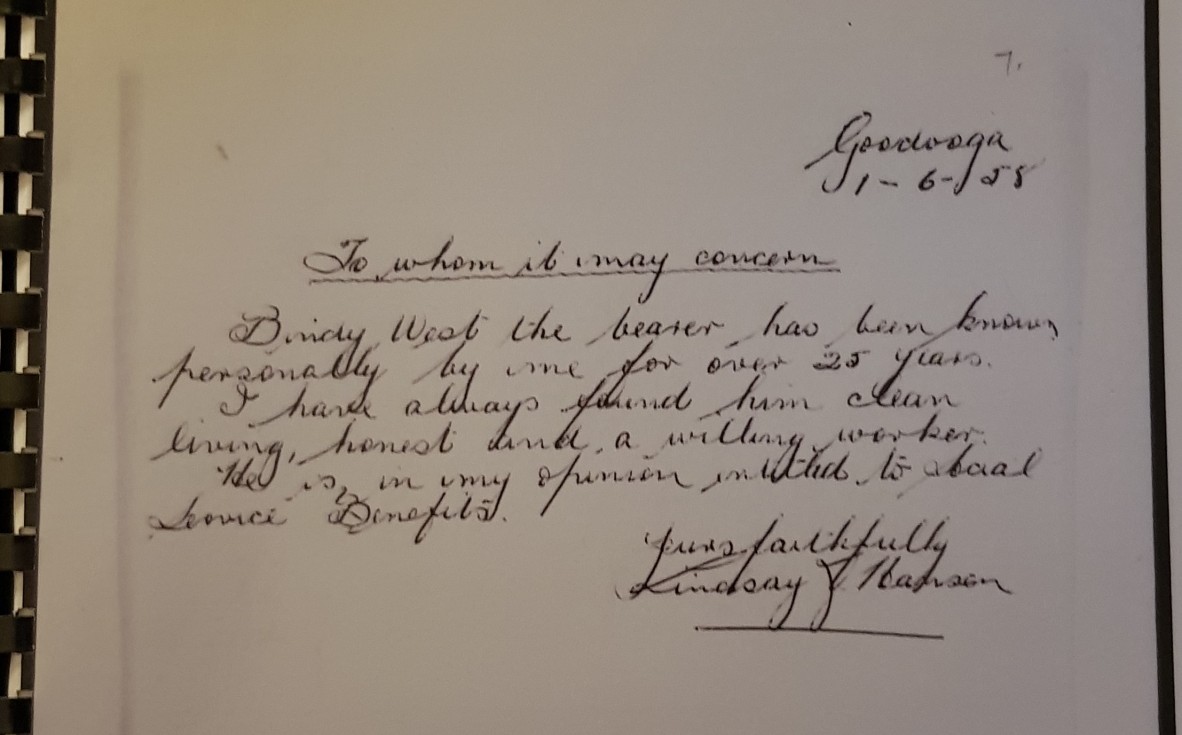 7.
Goodooga
1-6-58
To whom it may concern
Bindy West the bearer has been known
personally by me for over 25 years.
I have always found him clean
living, honest and a willing worker.
He is, in my opinion intitled to Social
Service Benefits.
Yours faithfully
Lindsay J Hanson